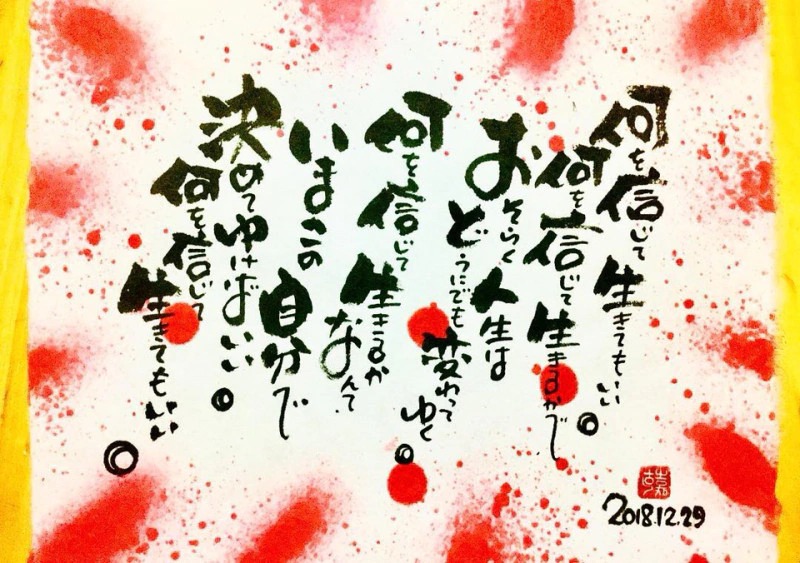 何を信じて生きてもいい
何を信じて生きるかで。
おそらく人生は
どうにでも変わってゆく。
何を信じて生きるか
なんて
いまこの
自分で
決めてゆけばいい。
何を信じて
生きてもいい。
2018.12.29